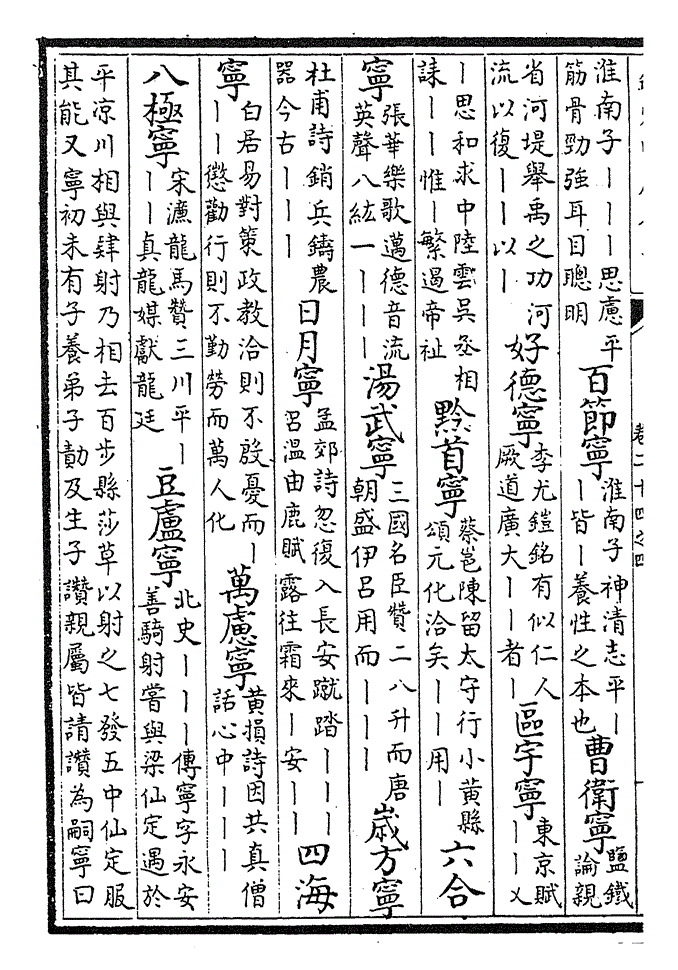 卷二十四之四
淮南子｜｜｜思慮平
筋骨勁強耳目聰明
百節寧
淮南子神清志平｜
｜皆｜養性之本也
曹衛寧
鹽鐵
論親
省河堤舉禹之功河
流以復｜｜以｜
好德寧
李尤鎧銘有似仁人
厥道廣大｜｜者｜
區宇寧
東京賦
｜｜乂
｜思和求中陸雲吳丞相
誄｜｜惟｜繁遏帝祉
黔首寧
蔡邕陳留太守行小黃縣
頌元化洽矣｜｜用｜
六合
寧
張華樂歌邁德音流
英聲八紘一｜｜｜
湯武寧
三國名臣贊二八升而唐
朝盛伊呂用而｜｜｜
歲方寧
杜甫詩銷兵鑄農
器今古｜｜｜
日月寧
孟郊詩忽復入長安蹴踏｜｜｜
呂溫由鹿賦露往霜來｜安｜｜
四海
寧
白居易對策政教洽則不殷憂而｜
｜｜懲勸行則不勤勞而萬人化
萬慮寧
黃損詩因共真僧
話心中｜｜｜
八極寧
宋濂龍馬贊三川平｜
｜｜貞龍媒獻龍廷
豆盧寧
北史｜｜｜傳寧字永安
善騎射嘗與梁仙定遇於
平涼川相與肄射乃相去百步縣莎草以射之七發五中仙定服
其能又寧初未有子養弟子勣及生子讚親屬皆請讚為嗣寧曰